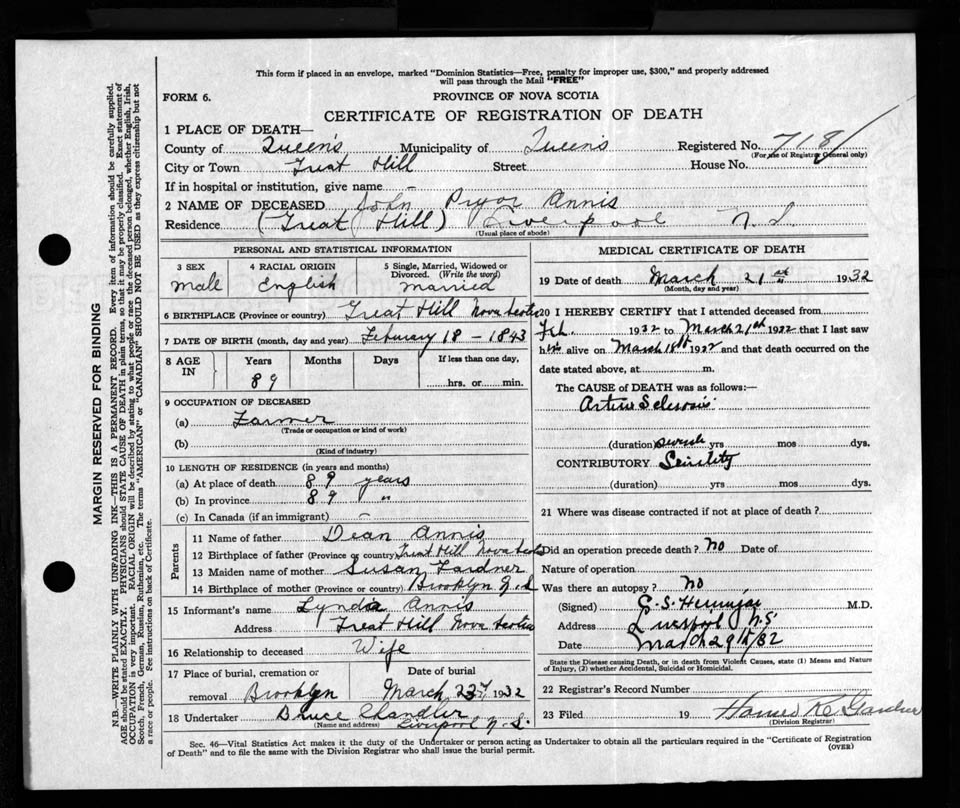 This form if placed in an envelope, marked "Dominion Statistics—Free, penalty for improper use, $300," and properly addressed
will pass through the Mail "FREE"
FORM 6.
PROVINCE OF NOVA SCOTIA
CERTIFICATE OF REGISTRATION OF DEATH
1 PLACE OF DEATH—
County of Queen's Municipality of Queens Registered No. 7181
(For use of Registrar General only)
City or Town Great Hill Street House No.
If in hospital or institution, give name —
2 NAME OF DECEASED John Pryor Annis
Residence (Great Hill) Liverpool N.S.
(Usual place of abode)
PERSONAL AND STATISTICAL INFORMATION
3 SEX
Male
4 RACIAL ORIGIN
English
5 Single, Married, Widowed or
Divorced. (Write the word)
married
6 BIRTHPLACE (Province or country) Great Hill Nova Scotia
7 DATE OF BIRTH (month, day and year) February 18 – 1843
8 AGE IN
Years Months Days If less than one day,
89
hrs. or min.
9 OCCUPATION OF DECEASED
(a) Farmer
(Trade or occupation or kind of work)
(b)
(Kind of industry)
10 LENGTH OF RESIDENCE (in years and months)
(a) At place of death 89 years
(b) In province 89 "
(c) In Canada (if an immigrant) –
Parents
11 Name of father Dean Annis
12 Birthplace of father (Province or country) Great Hill Nova Scotia
13 Maiden name of mother Susan Gardner
14 Birthplace of mother (Province or country) Brooklyn N.S
15 Informant's name Lyndia Annis
Address Great Hill Nova Scotia
16 Relationship to deceased Wife
17 Place of burial, cremation or
removal Brooklyn
Date of burial
March 23rd 1932
18 Undertaker Bruce Chandler
(Name and address) Liverpool N.S.
MEDICAL CERTIFICATE OF DEATH
19 Date of death March 21st 1932
(Month, day and year)
20 I HEREBY CERTIFY that I attended deceased from
Feb. 1932 to March 21st 1932 that I last saw
him alive on March 18th 1932 and that death occurred on the
date stated above, at m.
The CAUSE of DEATH was as follows:—
Arterio Sclerosis
(duration) yrs mos dys.
CONTRIBUTORY Senility
(duration) yrs mos dys.
21 Where was disease contracted if not at place of death?
Did an operation precede death? No Date of
Nature of operation
Was there an autopsy? No
(Signed) M.D.
Address Liverpool N.S.
Date March 29th/32
State the Disease causing Death, or in death from Violent Causes, state (1) Means and Nature
of Injury, (2) whether Accidental, Suicidal or Homicidal.
22 Registrar's Record Number
23 Filed 19 Gardner
(Division Registrar)
Sec. 46—Vital Statistics Act makes it the duty of the Undertaker or person acting as Undertaker to obtain all the particulars required in the "Certificate of Registration
of Death" and to file the same with the Division Registrar who shall issue the burial permit.
(OVER)
MARGIN RESERVED FOR BINDING
N.B.—WRITE PLAINLY WITH UNFADING INK—THIS IS A PERMANENT RECORD. Every item of information should be carefully supplied.
AGE should be stated EXACTLY. PHYSICIANS should STATE CAUSE OF DEATH in plain terms, so that it may be properly classified. Exact statement of
OCCUPATION is very important. RACIAL ORIGIN will be described by stating to what people or race the deceased person belonged, whether English, Irish,
Scotch, French, German, Russian, Ruthenian, etc. The terms "AMERICAN" or "CANADIAN" SHOULD NOT BE USED as they express citizenship but not
a race or people. See instructions on back of Certificate.